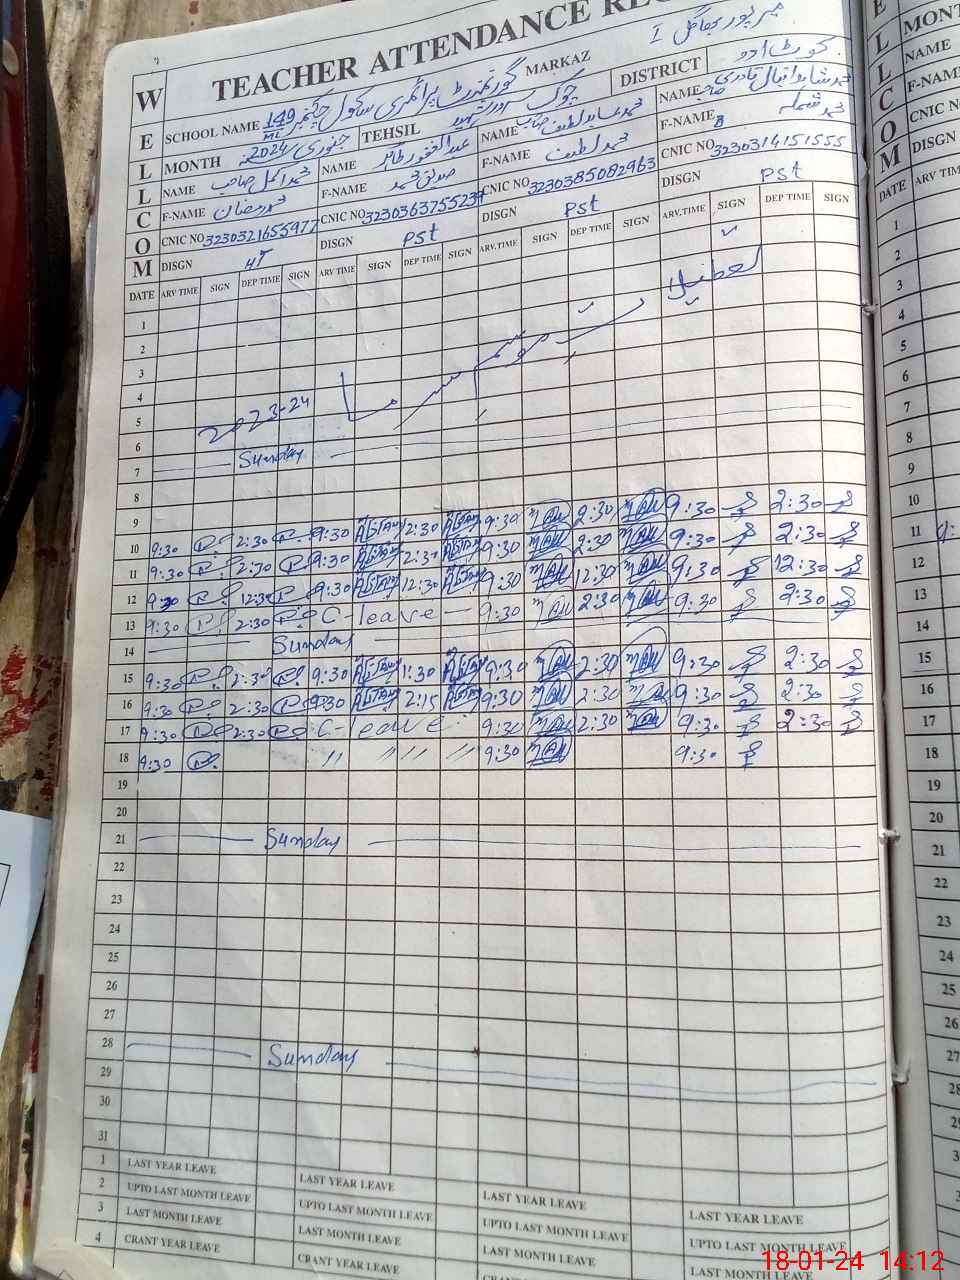 TEACHER ATTENDANCE RE
WELLCOM
SCHOOL NAME گورنمنٹ پرائمری سکول چکنمبر 149 ML MARKAZ میر پور بھاگل I
MONTH جنوری 2024 TEHSIL چوک سرور شہید DISTRICT کوٹ ادو
NAME محمد اکمل صاحب NAME عبدالغفور طاہر NAME محمد عابد لطیف صاحب NAME محمد شاہد اقبال قادری صاحب
F-NAME محمد رمضان F-NAME صدیق محمد F-NAME محمد لطیف F-NAME محمد شملہ
CNIC NO 3230321655977 CNIC NO 3230363755239 CNIC NO 3230385082963 CNIC NO 3230314151555
DISGN HT DISGN Pst DISGN Pst DISGN Pst
DATE ARV TIME SIGN DEP TIME SIGN ARV TIME SIGN DEP TIME SIGN ARV.TIME SIGN DEP TIME SIGN ARV.TIME SIGN DEP TIME SIGN
1
2
3
4
5
تعطیلات موسم سرما 2023-24
6
7 Sunday
8
9
10 9:30 2:30 9:30 2:30 9:30 2:30 9:30 2:30
11 9:30 2:30 9:30 2:30 9:30 2:30 9:30 2:30
12 9:30 12:30 9:30 12:30 9:30 12:30 9:30 12:30
13 9:30 2:30 C-leave 9:30 2:30 9:30 2:30
14 Sunday
15 9:30 2:30 9:30 1:30 9:30 2:30 9:30 2:30
16 9:30 2:30 9:30 2:15 9:30 2:30 9:30 2:30
17 9:30 2:30 C-leave 9:30 2:30 9:30 2:30
18 9:30 // // // // 9:30 9:30
19
20
21 Sunday
22
23
24
25
26
27
28 Sunday
29
30
31
1 LAST YEAR LEAVE LAST YEAR LEAVE LAST YEAR LEAVE LAST YEAR LEAVE
2 UPTO LAST MONTH LEAVE UPTO LAST MONTH LEAVE UPTO LAST MONTH LEAVE UPTO LAST MONTH LEAVE
3 LAST MONTH LEAVE LAST MONTH LEAVE LAST MONTH LEAVE LAST MONTH LEAVE
4 CRANT YEAR LEAVE CRANT YEAR LEAVE CRANT
E L L C O M
MONT
NAME
F-NAME
CNIC NO
DISGN
DATE ARV TIM
1
2
3
4
5
6
7
8
9
10
11
12
13
14
15
16
17
18
19
20
21
22
23
24
25
26
27
28
18-01-24 14:12